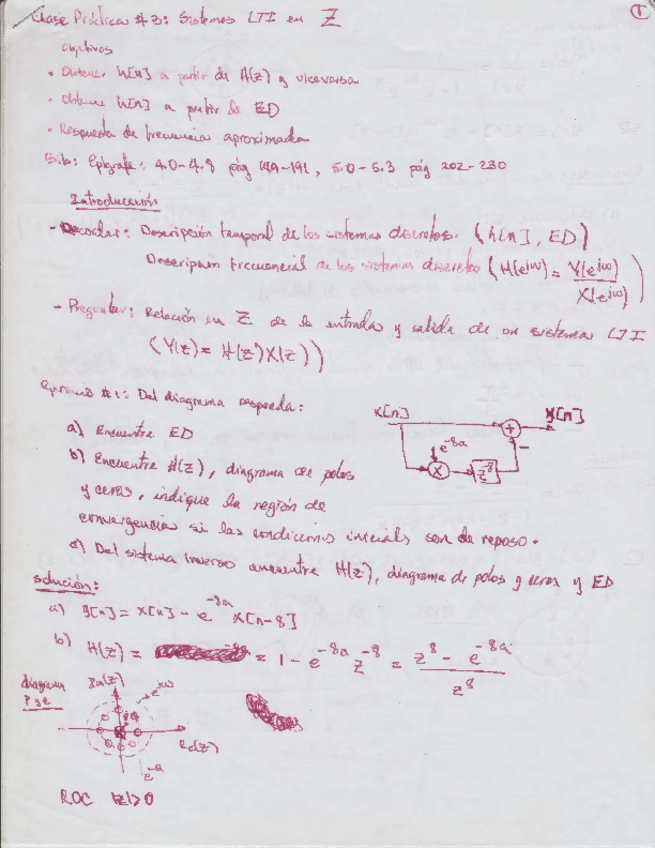 Clase Práctica # 3: Sistemas LTI en Z
1
objetivos
• Obtener h[n] a partir de H(z) y viceversa
• Obtener h[n] a partir la ED
• Respuesta de frecuencia aproximada
Bib: Epígrafe: 4.0-4.8 pág 149-191, 5.0-5.3 pág 202-230
Introducción
- Recordar: Descripción temporal de los sistemas discretos. (h[n], ED)
Descripción frecuencial de los sistemas discreto (H(e^jω) = Y(e^jω) / X(e^jω))
- Preguntar: Relación en Z de la entrada y salida de un sistema LTI
(Y(z) = H(z)X(z))
Ejercicio #1: Del diagrama responda:
x[n] + y[n]
a) Encuentre ED
e^-8a
-
x
z^-8
b) Encuentre H(z), diagrama de polos
y ceros, indique la región de
convergencia si las condiciones inicials son de reposo.
c) Del sistema inverso encuentre H(z), diagrama de polos y ceros y ED
solución:
a) y[n] = x[n] - e^-8a x[n-8]
b) H(z) = = 1 - e^-8a z^-8 = z^8 - e^-8a / z^8
diagrama
p z c
Im(z)
e^jω
Re(z)
ROC |z|>0